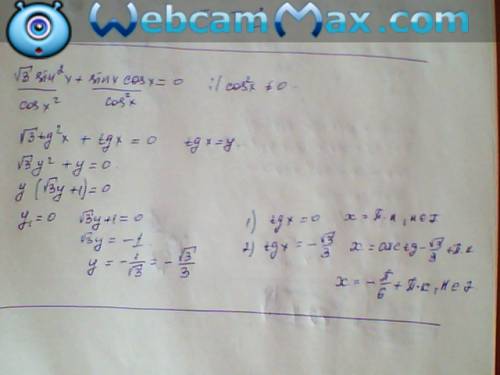 WebcamMax.com
√3 sin²x / cos x² + sinx cosx / cos²x = 0 :| cos²x ≠ 0.
√3 tg²x + tgx = 0 tgx = y.
√3y² + y = 0.
y (√3y + 1) = 0
y₁ = 0 √3y + 1 = 0 1) tgx = 0 x = π·n, n ∈ Z
√3y = -1 2) tgx = -√3/3 x = arctg -√3/3 + π·n
y = -1/√3 = -√3/3
x = -π/6 + π·n, n ∈ Z